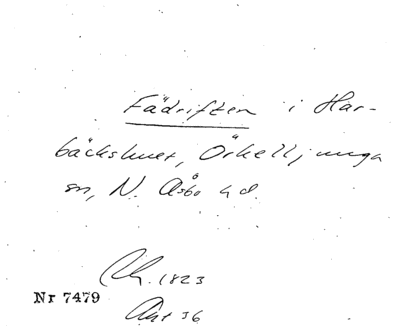 Fädriften i Har-
bäckshult, Örkelljunga
sn, N. Åsbo hd.
1823
Nr 7479
36